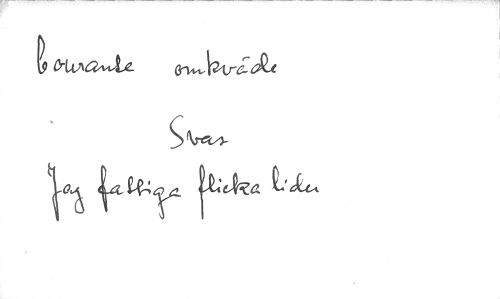 Courante omkväde
Svar
Jag fattiga flicka lider